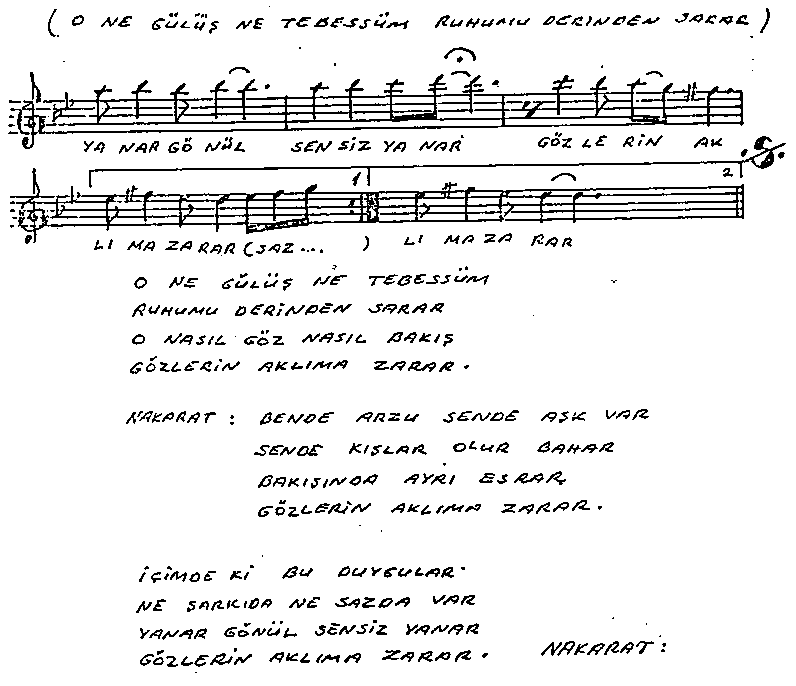 ( O NE GÜLÜŞ NE TEBESSÜM RUHUMU DERİNDEN SARAR )
YA NAR GÖ NÜL SEN SİZ YA NAR GÖZ LE RİN AK
1 2
LI MA ZA RAR ( SAZ ... ) LI MA ZA RAR
O NE GÜLÜŞ NE TEBESSÜM
RUHUMU DERİNDEN SARAR
O NASIL GÖZ NASIL BAKIŞ
GÖZLERİN AKLIMA ZARAR.
NAKARAT : BENDE ARZU SENDE AŞK VAR
SENDE KIŞLAR OLUR BAHAR
BAKIŞINDA AYRI ESRAR
GÖZLERİN AKLIMA ZARAR.
İÇİMDE Kİ BU DUYGULAR
NE ŞARKIDA NE SAZDA VAR
YANAR GÖNÜL SENSİZ YANAR
GÖZLERİN AKLIMA ZARAR. NAKARAT :